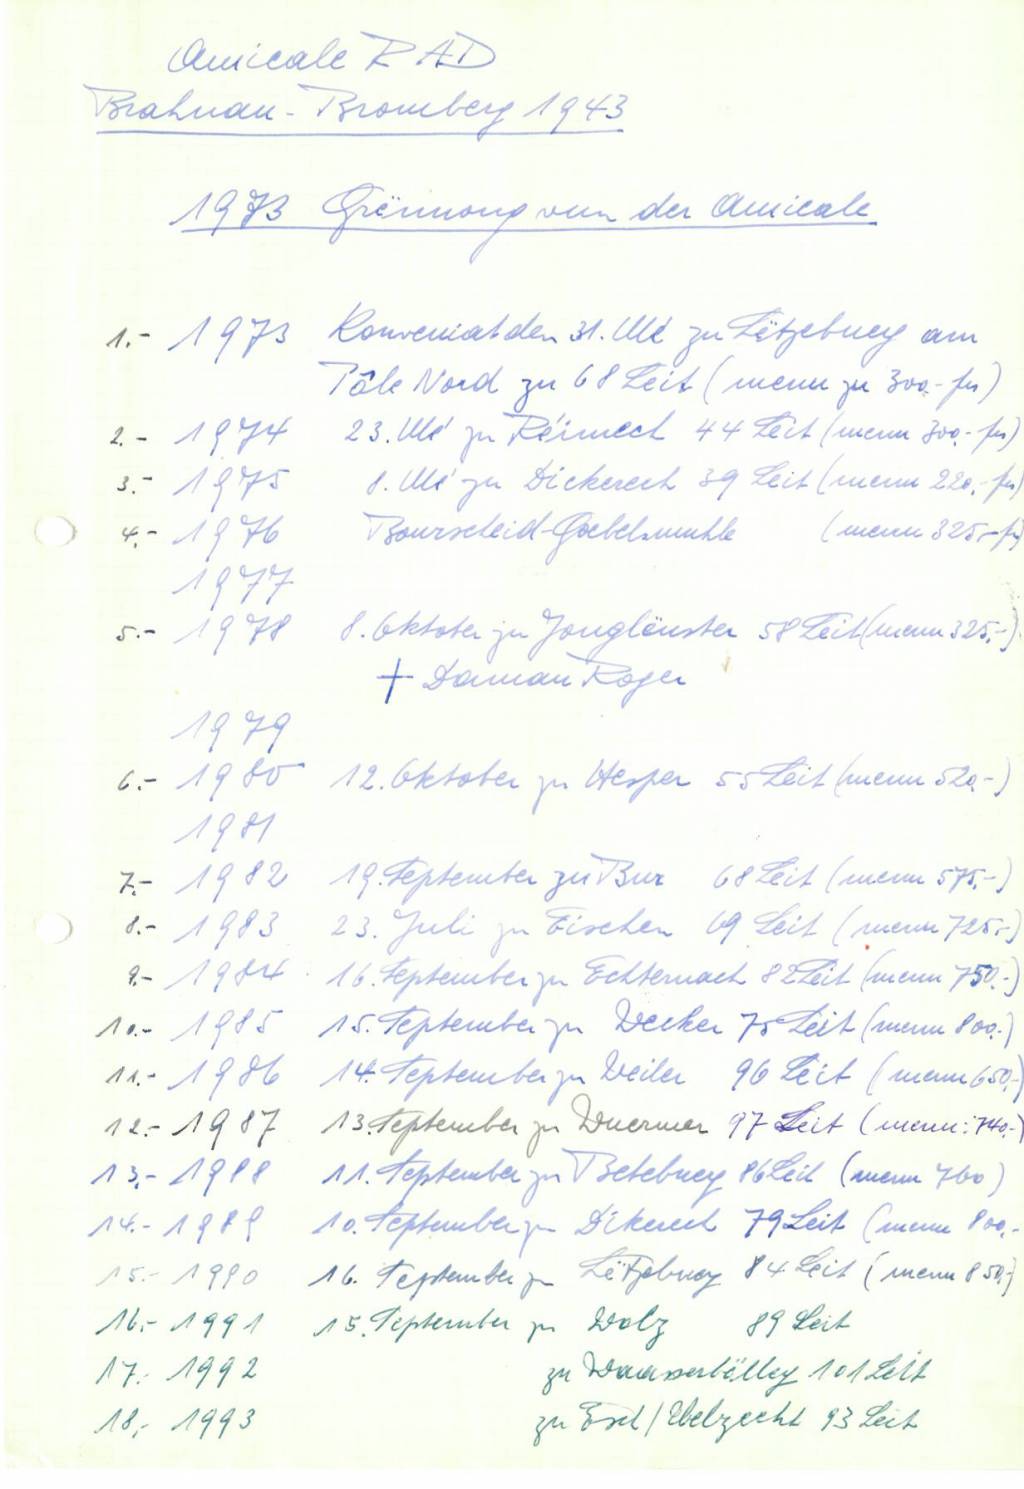 Amicale RAD
Brahnau - Bromberg 1943
1973 Grënnong vun der Amicale
1.- 1973 Konveniat den 31. Mé zu Lëtzebuerg am
Pôle Nord zu 68 Leit (menu zu 300,- frs)
2.- 1974 23. Mé zu Réimech 44 Leit (menu 300,- frs)
3.- 1975 8. Mé zu Dickerech 39 Leit (menu 220,- frs)
4.- 1976 Bourscheid-Goebelsmuhle (menu 325,- fr
1977
5.- 1978 8. Oktober zu Jonglënster 58 Leit (menu 325,-)
† Daman Roger
1979
6.- 1980 12. Oktober zu Hesper 55 Leit (menu 520,-)
1981
7.- 1982 19. September zu Bur 68 Leit (menu 575,-)
8.- 1983 23. Juli zu Eischen 69 Leit (menu 725,-)
9.- 1984 16. September zu Echternach 82 Leit (menu 750,-)
10.- 1985 15. September zu Wecker 75 Leit (menu 800,-)
11.- 1986 14. September zu Weiler 96 Leit (menu 650,-)
12.- 1987 13. September zu Wuermer 97 Leit (menu: 740,-)
13.- 1988 11. September zu Betebuerg 86 Leit (menu 760)
14.- 1989 10. September zu Dikerech 79 Leit (menu 800,-
15.- 1990 16. September zu Lëtzebuerg 84 Leit (menu 850,-)
16.- 1991 15. September zu Wolz 89 Leit
17.- 1992 zu Waasserbëlleg 101 Leit
18.- 1993 zu Esch/Uelzecht 93 Leit